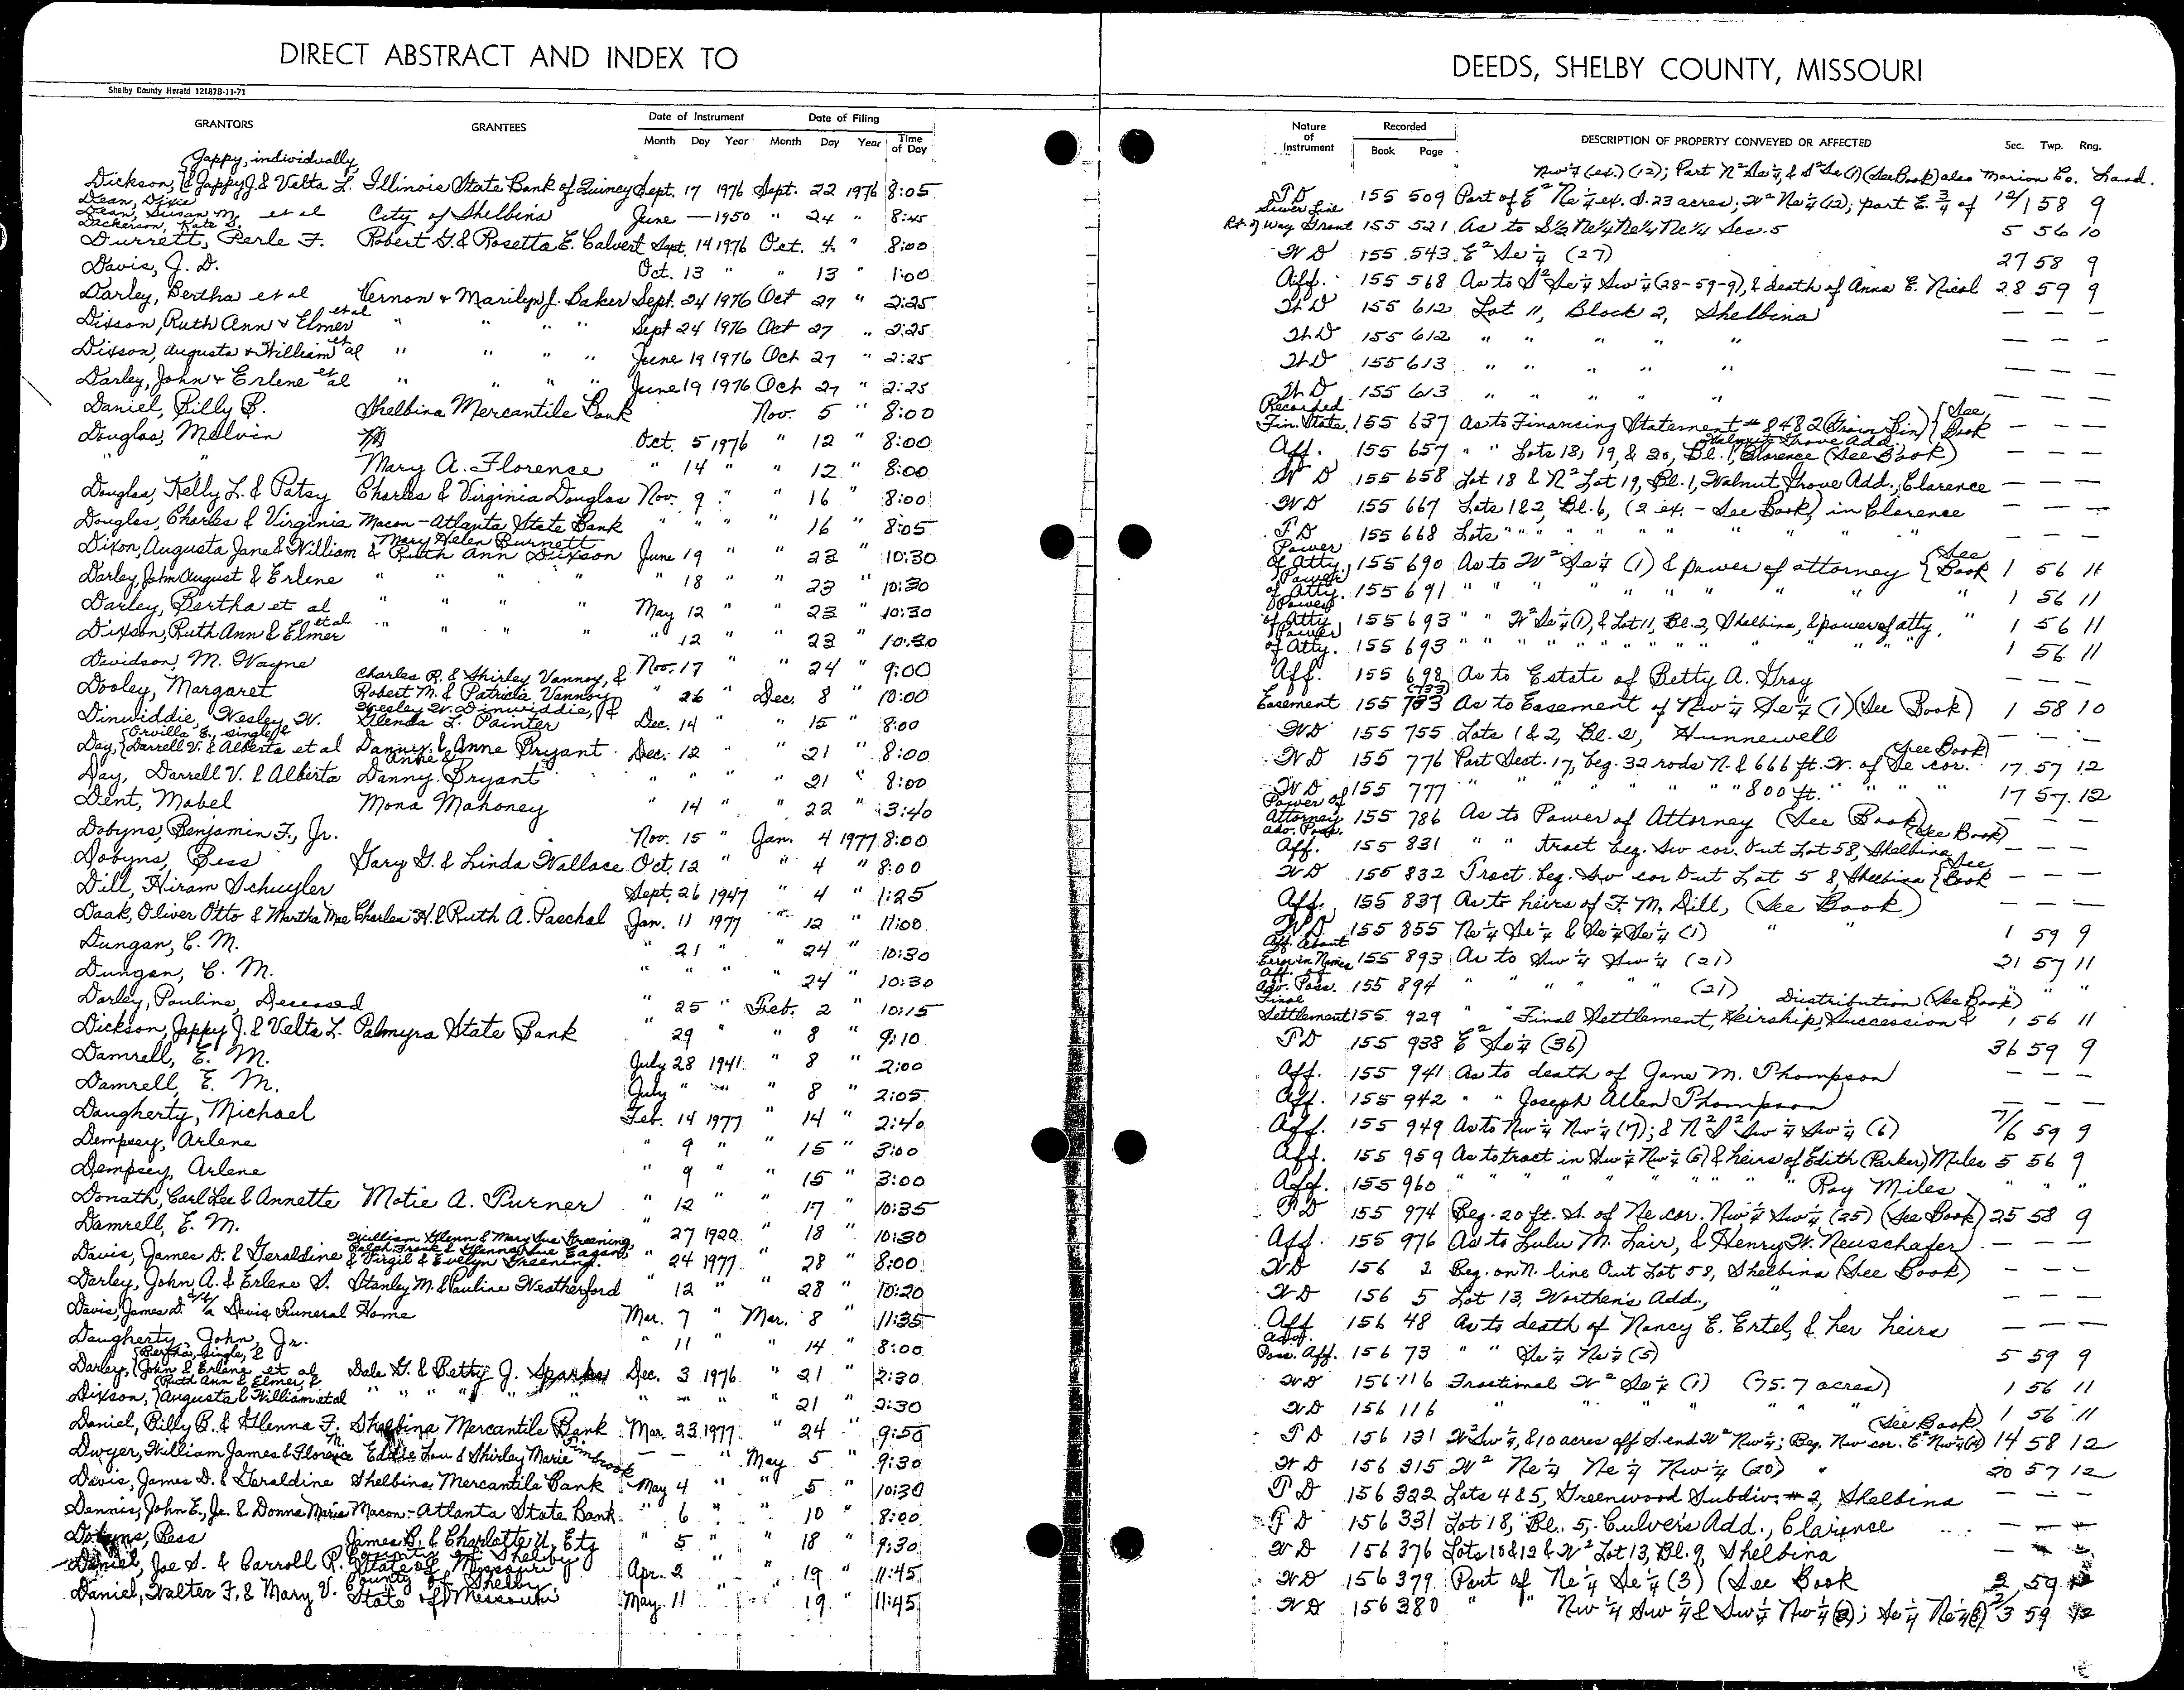 DIRECT ABSTRACT AND INDEX TO
Shelby County Herald 12187B-11-71
GRANTORS GRANTEES Date of Instrument Date of Filing
Month Day Year Month Day Year Time of Day
Jappy, individually,
Dickson, & Jappy J. & Velta L. Illinois State Bank of Quincy Sept. 17 1976 Sept. 22 1976 8:05
Dean, Dixie
Dean, Susan M. et al City of Shelbina June — 1950 " 24 " 8:45
Dickerson, Kate S.
Durrett, Perle F. Robert G. & Rosetta E. Calvert Sept. 14 1976 Oct. 4 " 8:00
Davis, J. D. Oct. 13 " " 13 " 1:00
Darley, Bertha et al Vernon & Marilyn J. Baker Sept. 24 1976 Oct 27 " 2:25
Dixson, Ruth Ann & Elmer et al " " " " Sept 24 1976 Oct 27 " 2:25
Dixson, Augusta & William et al " " " " June 19 1976 Oct 27 " 2:25
Darley, John & Erlene et al " " " " June 19 1976 Oct 27 " 2:25
Daniel, Billy B. Shelbina Mercantile Bank Nov. 5 " 8:00
Douglas, Melvin Oct. 5 1976 " 12 " 8:00
" " Mary A. Florence " 14 " " 12 " 8:00
Douglas, Kelly L. & Patsy Charles & Virginia Douglas Nov. 9 " " 16 " 8:00
Douglas, Charles & Virginia Macon-Atlanta State Bank " " " " 16 " 8:05
Mary Helen Burnett
Dixon, Augusta Jane & William & Ruth Ann Dixson June 19 " " 23 " 10:30
Darley, John August & Erlene " " " " " 18 " " 23 " 10:30
Darley, Bertha et al " " " " May 12 " " 23 " 10:30
Dixson, Ruth Ann & Elmer et al " " " " " 12 " " 23 " 10:30
Davidson, M. Wayne Nov. 17 " " 24 " 9:00
Charles R. & Shirley Vannoy, &
Dooley, Margaret Robert M. & Patricia Vannoy " 26 " Dec. 8 " 10:00
Wesley W. Dinwiddie, &
Dinwiddie, Wesley W. Glenda L. Painter Dec. 14 " " 15 " 8:00
Orvilla E., single &
Day, Darrell V. & Alberta et al Danny & Anne Bryant Dec. 12 " " 21 " 8:00
Anne &
Day, Darrell V. & Alberta Danny Bryant " " " " 21 " 8:00
Dent, Mabel Mona Mahoney " 14 " " 22 " 3:40
Dobyns, Benjamin F., Jr. Nov. 15 " Jan. 4 1977 8:00
Dobyns, Bess Gary G. & Linda Wallace Oct. 12 " " 4 " 8:00
Dill, Hiram Schuyler Sept. 26 1947 " 4 " 1:25
Daak, Oliver Otto & Martha Mae Charles H. & Ruth A. Paschal Jan. 11 1977 " 12 " 11:00
Dungan, C. M. " 21 " " 24 " 10:30
Dungan, C. M. " " " 24 " 10:30
Darley, Pauline, Deceased " 25 " Feb. 2 " 10:15
Dickson, Jappy J. & Velta L. Palmyra State Bank " 29 " " 8 " 9:10
Damrell, E. M. July 28 1941 " 8 " 2:00
Damrell, E. M. July " " " 8 " 2:05
Daugherty, Michael Feb. 14 1977 " 14 " 2:40
Dempsey, Arlene " 9 " " 15 " 3:00
Dempsey, Arlene " 9 " " 15 " 3:00
Donath, Carl Lee & Annette Motie A. Turner " 12 " " 17 " 10:35
Damrell, E. M. " 27 1920 " 18 " 10:30
William Glenn & Mary Sue Greening,
Ralph Frank & Glenna Sue Eagan,
Davis, James D. & Geraldine & Virgil & Evelyn Greening. " 24 1977 " 28 " 8:00
Darley, John A. & Erlene S. Stanley M. & Pauline Weatherford " 12 " " 28 " 10:20
Davis, James D. d/b/a Davis Funeral Home Mar. 7 " Mar. 8 " 11:35
Daugherty, John, Jr. " 11 " " 14 " 8:00
Bertha, single, &
Darley, John & Erlene et al Dale G. & Betty J. Sparks Dec. 3 1976 " 21 " 2:30
Ruth Ann & Elmer, &
Dixson, Augusta & William et al " " " " " " " " 21 " 2:30
Daniel, Billy B. & Glenna F. Shelbina Mercantile Bank Mar. 23 1977 " 24 " 9:50
Dwyer, William James & Florence M. Eddie Lou & Shirley Marie Timbrook — — " May 5 " 9:30
Davis, James D. & Geraldine Shelbina Mercantile Bank May 4 " " 5 " 10:30
Dennis, John E., Jr. & Donna Marie Macon-Atlanta State Bank " 6 " " 10 " 8:00
Dobyns, Bess James B. & Charlotte U. Etz " 5 " " 18 " 9:30
County of Shelby
Daniel, Joe S. & Carroll P. State of Missouri Apr. 2 " " 19 " 11:45
County of Shelby,
Daniel, Walter F. & Mary V. State of Missouri May 11 " " 19 " 11:45
DEEDS, SHELBY COUNTY, MISSOURI
Nature of Instrument Recorded Book Page DESCRIPTION OF PROPERTY CONVEYED OR AFFECTED Sec. Twp. Rng.
Nw¼ (ex.) (12); Part N² Se¼, & S² Se (1) (See Book) also Marion Co. Land.
T D 155 509 Part of E² Ne¼ ex. S. 23 acres; W² Ne¼ (12); part E. ¾ of 12/1 58 9
Sewer Line
Rt. of Way Grant 155 521 As to S½ Ne¼ Ne¼ Ne¼ Sec. 5 5 56 10
W D 155 543 E² Se¼ (27) 27 58 9
Aff. 155 568 As to S² Se¼ Sw¼ (28-59-9), & death of Anna E. Nicol 28 59 9
W D 155 612 Lot 11, Block 2, Shelbina — — —
W D 155 612 " " " " " — — —
W D 155 613 " " " " " — — —
W D 155 613 " " " " " — — —
Recorded
Fin. State. 155 637 As to Financing Statement # 8482 (Grain Bin) (See Book — — —
Walnut Grove Add.
Aff. 155 657 " " Lots 18, 19, & 20, Bl. 1, Clarence (See Book) — — —
W D 155 658 Lot 18 & N² Lot 19, Bl. 1, Walnut Grove Add., Clarence — — —
W D 155 667 Lots 1 & 2, Bl. 6, (2 ex. - See Book) in Clarence — — —
T D 155 668 Lots " " " " " " " " " — — —
Power of Atty. 155 690 As to W² Se¼ (1) & power of attorney (See Book 1 56 11
Power of Atty. 155 691 " " " " " " " " " 1 56 11
Power of Atty. 155 693 " " W² Se¼ (1), & Lot 11, Bl. 2, Shelbina, & power of atty. " 1 56 11
Power of Atty. 155 693 " " " " " " " " " " " 1 56 11
Aff. 155 698 As to Estate of Betty A. Gray — — —
(733)
Easement 155 733 As to Easement of Nw¼ Se¼ (1) (See Book) 1 58 10
WD 155 755 Lots 1 & 2, Bl. 2, Hunnewell — — —
W D 155 776 Part Sect. 17, beg. 32 rods N. & 666 ft. W. of Se cor. (See Book) 17 57 12
W D 155 777 " " " " " " 800 ft. " " " " 17 57 12
Power of Attorney 155 786 As to Power of Attorney (See Book) — — —
Adv. Poss. Aff. 155 831 " " tract beg. Sw cor. Out Lot 58, Shelbina (See Book) — — —
W D 155 832 Tract beg. Sw cor Out Lot 58, Shelbina (See Book — — —
Aff. 155 837 As to heirs of F. M. Dill, (See Book) — — —
W D 155 855 Ne¼ Se¼ & Se¼ Se¼ (1) " " 1 59 9
Aff. About Error in Names 155 893 As to Sw¼ Sw¼ (21) 21 57 11
Aff. of Adv. Poss. 155 894 " " " " " (21) " " "
Distribution (See Book)
Final Settlement 155 929 " " Final Settlement, Heirship, Succession & 1 56 11
T D 155 938 E² Se¼ (36) 36 59 9
Aff. 155 941 As to death of Jane M. Thompson — — —
Aff. 155 942 " " Joseph Allen Thompson — — —
Aff. 155 949 As to Nw¼ Nw¼ (7); & N² S² Sw¼ Sw¼ (6) 7/6 59 9
Aff. 155 959 As to tract in Sw¼ Nw¼ (5) & heirs of Edith (Parker) Miles 5 56 9
Aff. 155 960 " " " " " " " " " Roy Miles " " "
T D 155 974 Beg. 20 ft. S. of Ne cor. Nw¼ Sw¼ (25) (See Book) 25 58 9
Aff. 155 976 As to Lulu M. Lair, & Henry W. Neuschafer — — —
W D 156 2 Beg. on N. line Out Lot 58, Shelbina (See Book) — — —
W D 156 5 Lot 13, Worthen's Add., " — — —
Aff. 156 48 As to death of Nancy E. Ertel, & her heirs — — —
Adv. Poss. Aff. 156 73 " " Se¼ Ne¼ (5) 5 59 9
W D 156 116 Fractional W² Se¼ (1) (75.7 acres) 1 56 11
W D 156 116 " " " " " " 1 56 11
(See Book)
T D 156 131 W² Sw¼, & 10 acres off S. end W² Nw¼; Beg. Nw cor. E² Nw¼ (14) 14 58 12
W D 156 315 W² Ne¼ Ne¼ Nw¼ (20) " 20 57 12
T D 156 322 Lots 4 & 5, Greenwood Subdiv. # 2, Shelbina — — —
T D 156 331 Lot 18, Bl. 5, Culver's Add., Clarence — — —
W D 156 376 Lots 10 & 12 & W² Lot 13, Bl. 9, Shelbina — — —
W D 156 379 Part of Ne¼ Se¼ (3) (See Book 3 59 12
W D 156 380 " " Nw¼ Sw¼ & Sw¼ Nw¼ (2); Se¼ Ne¼ (3) 2/3 59 12